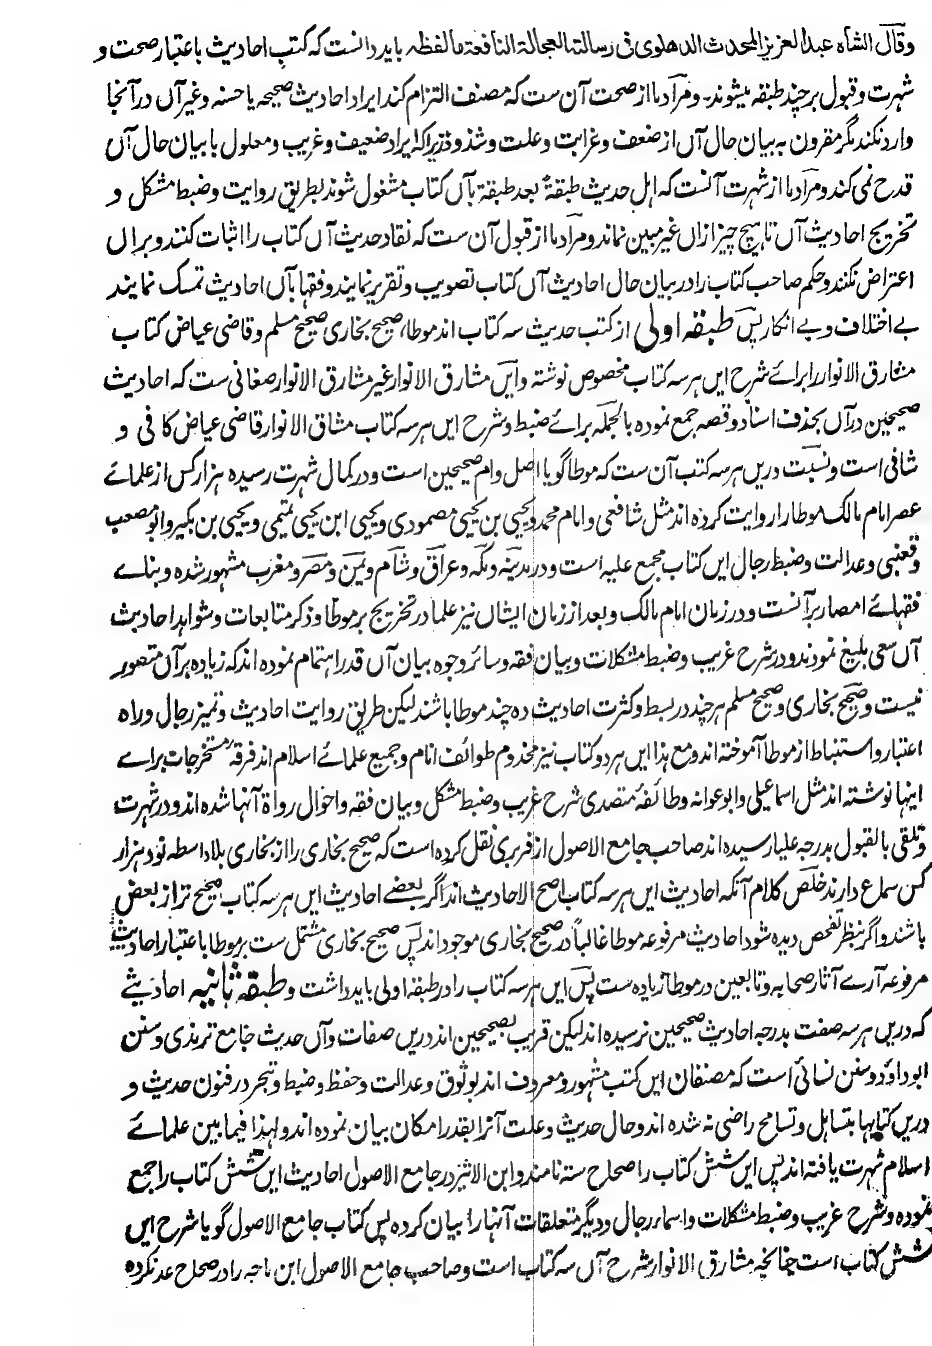 وقال الشاه عبدالعزیز المحدث الدهلوی فی رسالته العجالة النافعة مالفظه باید دانست که کتب احادیث باعتبار صحت و
شهرت و قبول بر چند طبقه میشوند۔ و مراد ما از صحت آن ست که مصنف التزام کند ایراد احادیث صحیحه یا حسنه و غیر آں در آنجا
وارد نکند مگر مقرون به بیان حال آں از ضعف و غرابت و علت و شذوذ زیرا که ایراد ضعیف و غریب و معلول با بیان حال آں
قدح نمی کند و مراد ما از شهرت آنست که اهل حدیث طبقةً بعد طبقة بآں کتاب مشغول شوند بطریق روایت و ضبط مشکل و
تخریج احادیث آں تا هیچ چیز ازاں غیر مبین نماند و مراد ما از قبول آن ست که نقاد حدیث آں کتاب را اثبات کنند و براں
اعتراض نکنند و حکم صاحب کتاب را در بیان حال احادیث آں کتاب تصویب و تقریر نمایند و فقها بآں احادیث تمسک نمایند
بے اختلاف و بے انکار پس طبقه اولی از کتب حدیث سه کتاب اند موطا، صحیح بخاری صحیح مسلم و قاضی عیاض کتاب
مشارق الانوار را برائے شرح ایں هر سه کتاب مخصوص نوشته و ایں مشارق الانوار غیر مشارق الانوار صغانی ست که احادیث
صحیحین درآں بحذف اسناد و قصه جمع نموده بالجمله برائے ضبط و شرح ایں هر سه کتاب مشاق الانوار قاضی عیاض کافی و
شافی است و نسبت دریں هر سه کتب آن ست که موطا گویا اصل و ام صحیحین است و در کمال شهرت رسیده هزار کس از علمائے
عصر امام مالک موطا را روایت کرده اند مثل شافعی و امام محمد و یحیی بن یحیی مصمودی و یحیی ابن یحیی تمیمی و یحیی بن بکیر و ابو مصعب
و قعنبی و عدالت و ضبط رجال ایں کتاب مجمع علیه است و در مدینه و مکه و عراق و شام و یمن و مصر و مغرب مشهور شده و بنائے
فقهائے امصار برآنست و در زمان امام مالک و بعد از زمان ایشاں نیز علما در تخریج بر موطا و ذکر متابعات و شواهد احادیث
آں سعی بلیغ نمودند و در شرح غریب و ضبط مشکلات و بیان فقه و سائر وجوه بیان آں قدر اهتمام نموده اند که زیاده برآں متصور
نیست و صحیح بخاری و صحیح مسلم هر چند در بسط و کثرت احادیث ده چند موطا باشند لیکن طریق روایت احادیث و تمیز رجال و راه
اعتبار و استنباط از موطا آموخته اند و مع هذا ایں هر دو کتاب نیز مخدوم طوائف انام و جمیع علمائے اسلام اند فرقهٔ مستخرجات برائے
اینها نوشته اند مثل اسماعیلی و ابوعوانه و طائفهٔ متصدی شرح غریب و ضبط مشکل و بیان فقه و احوال رواة آنها شده اند و در شهرت
و تلقی بالقبول بدرجه علیا رسیده اند صاحب جامع الاصول از فربری نقل کرده است که صحیح بخاری را از بخاری بلا واسطه نود هزار
کس سماع دارند خلص کلام آنکه احادیث ایں هر سه کتاب اصح الاحادیث اند اگر بعضے احادیث ایں هر سه کتاب صحیح تر از بعض
باشند و اگر بنظر تفحص دیده شود احادیث مرفوعه موطا غالباً در صحیح بخاری موجود اند پس صحیح بخاری مشتمل ست بر موطا باعتبار احادیث
مرفوعه آرے آثار صحابه و تابعین در موطا زیاده ست پس ایں هر سه کتاب را در طبقه اولی باید داشت و طبقه ثانیه احادیثے
که دریں هر سه صفت بدرجه احادیث صحیحین نرسیده اند لیکن قریب بصحیحین اند دریں صفات و آں حدیث جامع ترمذی و سنن
ابوداؤد و سنن نسائی است که مصنفان ایں کتب مشهور و معروف اند بوثوق و عدالت و حفظ و ضبط و تبحر در فنون حدیث و
دریں کتابها بتساهل و تسامح راضی نه شده اند و حال حدیث و علت آنرا بقدر امکان بیان نموده اند و لهذا فیما بین علمائے
اسلام شهرت یافته اند پس ایں شش کتاب را صحاح سته نامند و ابن الاثیر در جامع الاصول احادیث ایں شش کتاب را جمع
نموده و شرح غریب و ضبط مشکلات و اسماء رجال و دیگر متعلقات آنها را بیان کرده پس کتاب جامع الاصول گویا شرح ایں
شش کتاب است چنانچه مشارق الانوار شرح آں سه کتاب است و صاحب جامع الاصول ابن ماجه را در صحاح عد نکرده